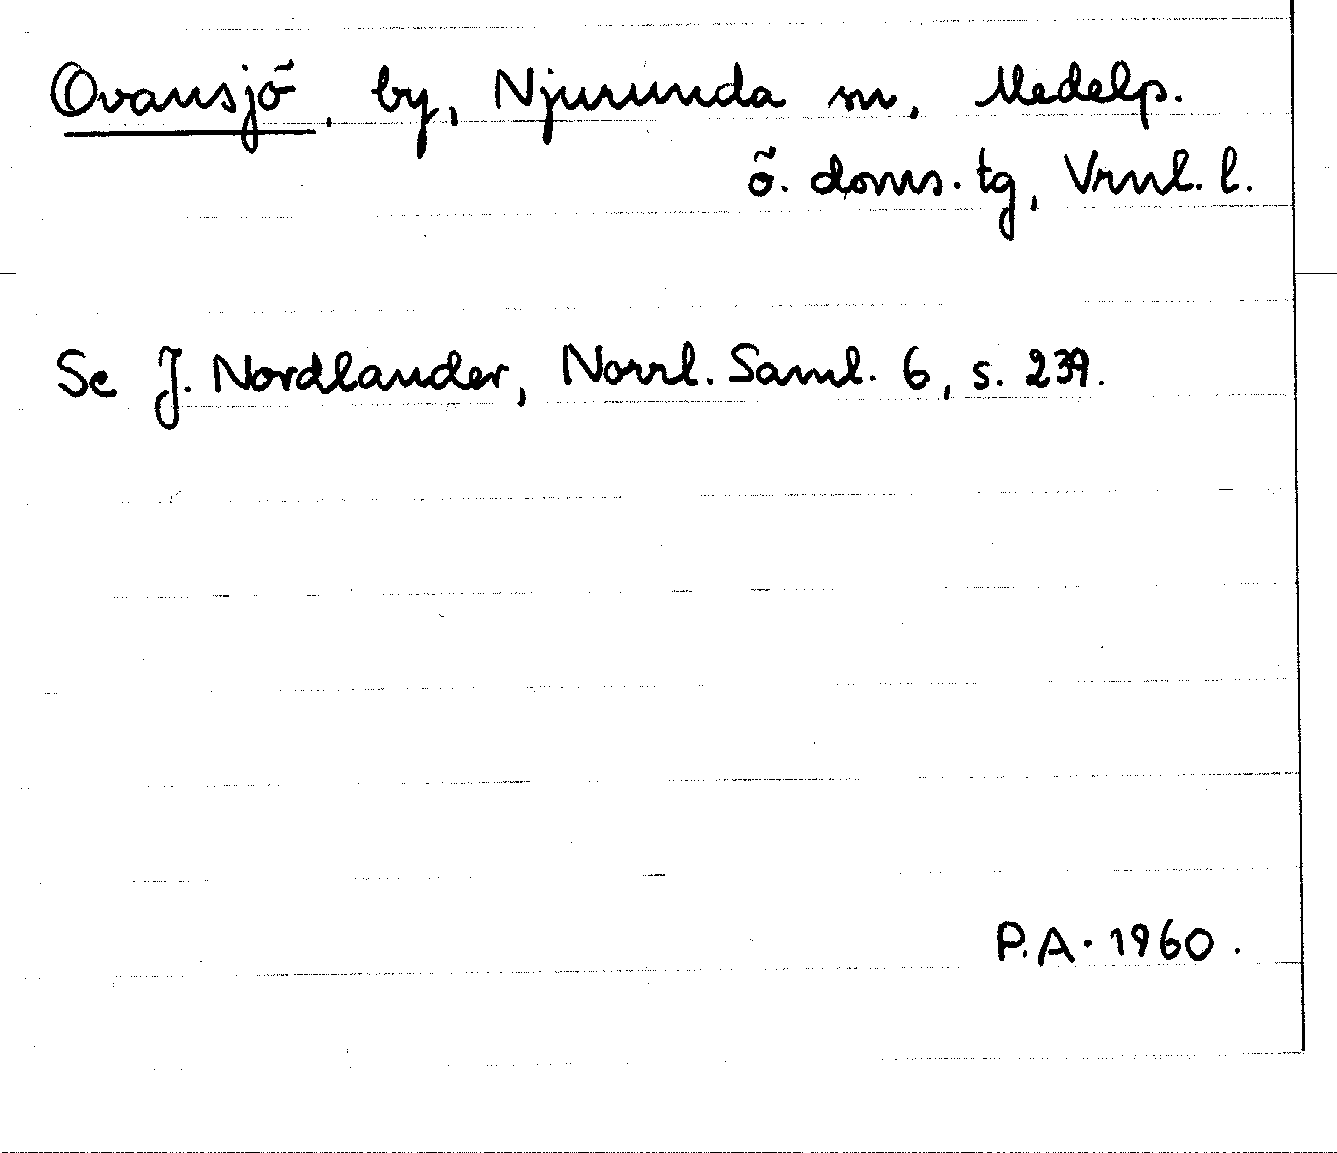 Ovansjö, by, Njurunda sn, Medelp.
ö. doms. tg, Vrnl. l.
Se J. Nordlander, Norrl. Saml. 6, s. 239.
P.A. 1960.